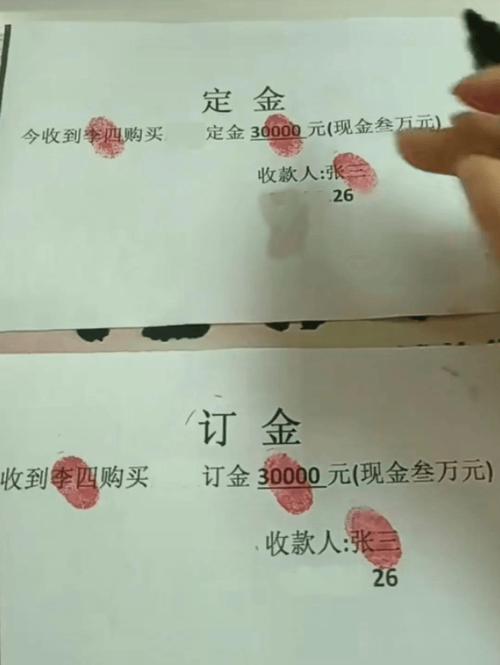 定金
今收到李四购买 定金30000元(现金叁万元)
收款人:张三
26
订金
收到李四购买 订金30000元(现金叁万元)
收款人:张三
26